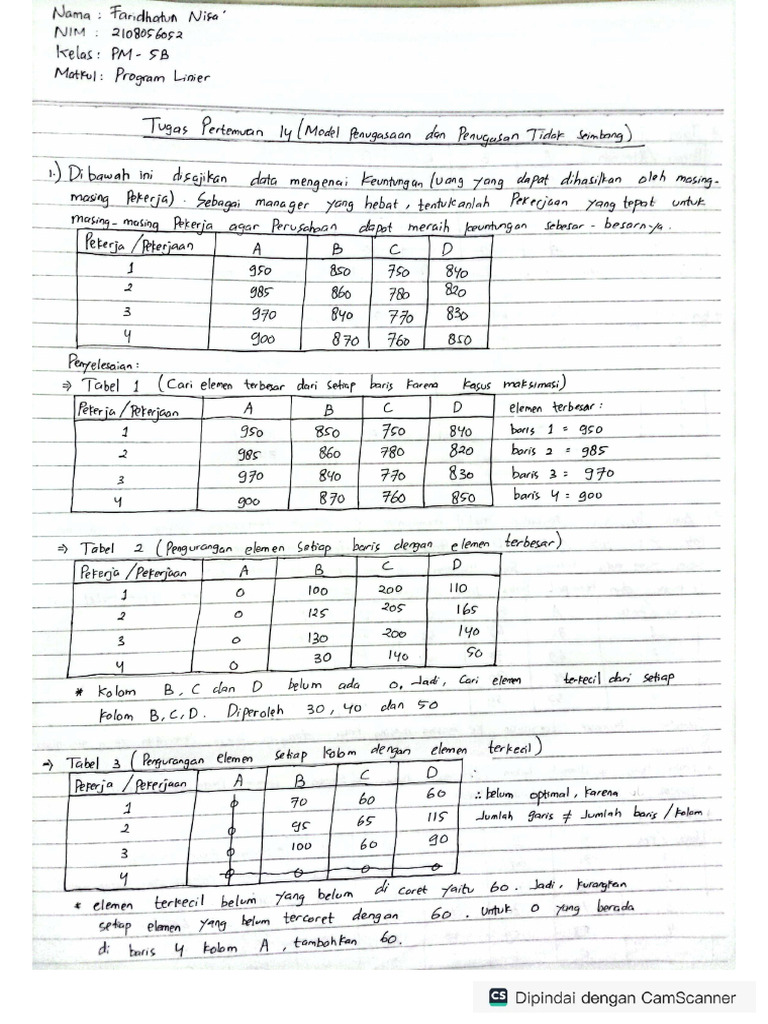 Nama : Faridhatun Nisa'
NIM : 2108056052
Kelas : PM - 5B
Matkul : Program Linier
Tugas Pertemuan 14 (Model Penugasaan dan Penugasan Tidak Seimbang)
1.) Dibawah ini disajikan data mengenai keuntungan (uang yang dapat dihasilkan oleh masing-
masing Pekerja). Sebagai manager yang hebat, tentukanlah Pekerjaan yang tepat untuk
masing-masing Pekerja agar Perusahaan dapat meraih keuntungan sebesar-besarnya.
Pekerja/Pekerjaan A B C D
1 950 850 750 840
2 985 860 780 820
3 970 840 770 830
4 900 870 760 850
Penyelesaian :
⇒ Tabel 1 (Cari elemen terbesar dari setiap baris karena kasus maksimasi)
Pekerja/Pekerjaan A B C D elemen terbesar :
1 950 850 750 840 baris 1 = 950
2 985 860 780 820 baris 2 = 985
3 970 840 770 830 baris 3 = 970
4 900 870 760 850 baris 4 = 900
⇒ Tabel 2 (Pengurangan elemen setiap baris dengan elemen terbesar)
Pekerja/Pekerjaan A B C D
1 0 100 200 110
2 0 125 205 165
3 0 130 200 140
4 0 30 140 50
* Kolom B, C dan D belum ada 0. Jadi, cari elemen terkecil dari setiap
kolom B, C, D. Diperoleh 30, 40 dan 50
⇒ Tabel 3 (Pengurangan elemen setiap kolom dengan elemen terkecil)
Pekerja/Pekerjaan A B C D
1 0 70 60 60 ∴ belum optimal, karena
2 0 95 65 115 Jumlah garis ≠ Jumlah baris/kolom
3 0 100 60 90
4 0 0 0 0
* elemen terkecil belum yang belum di coret yaitu 60. Jadi, kurangkan
setiap elemen yang belum tercoret dengan 60. Untuk 0 yang berada
di baris 4 kolom A, tambahkan 60.
CS Dipindai dengan CamScanner